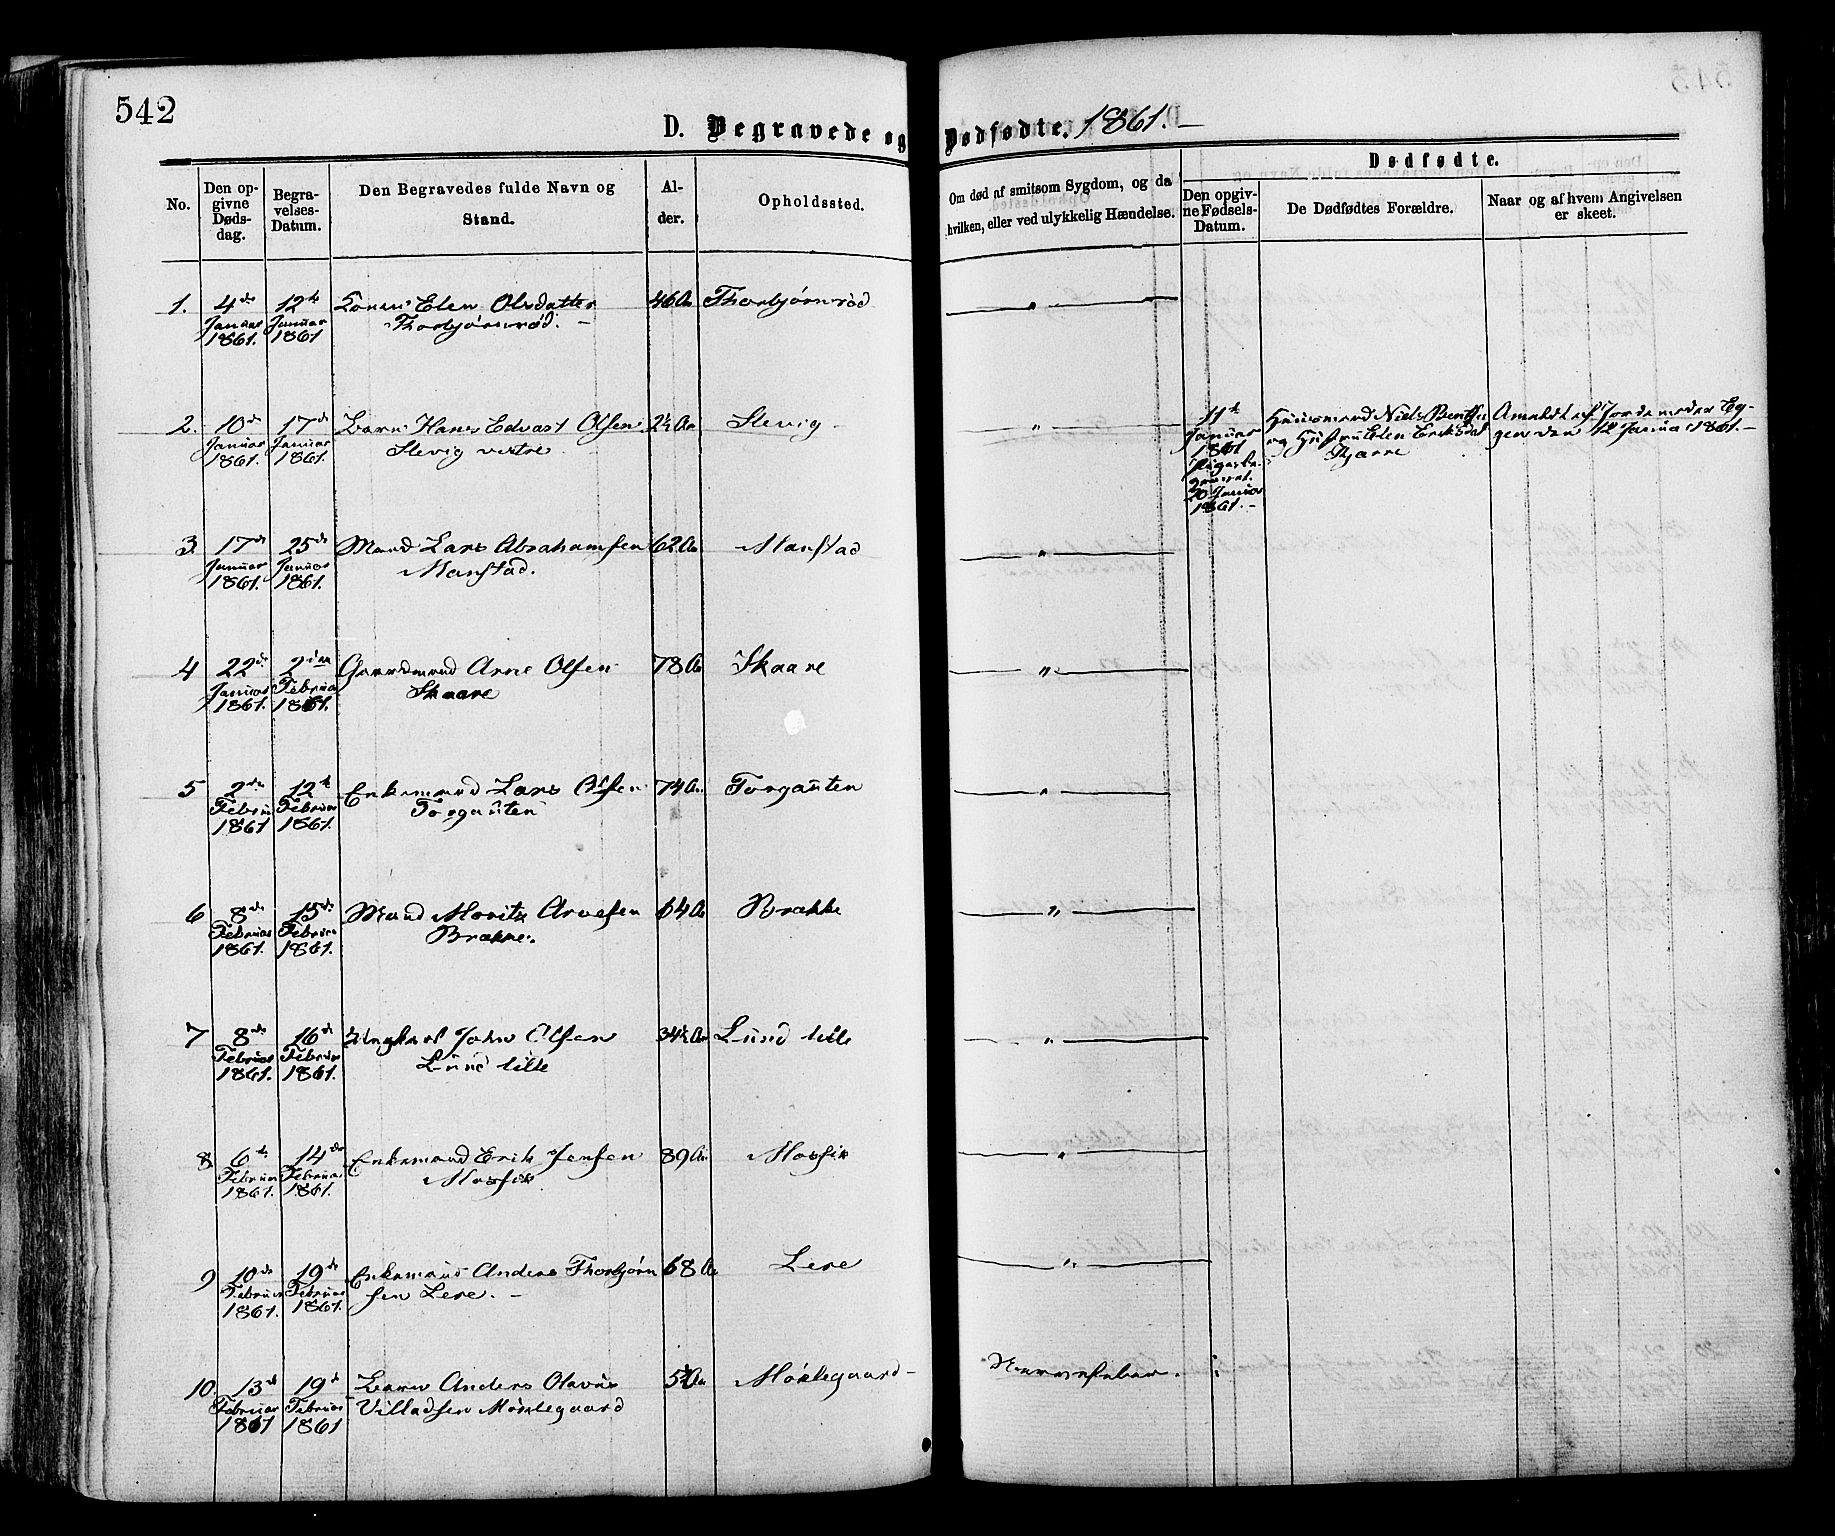 542
D. Begravede og Dødfødte. 1861. —
No.
Den opgivne Dødsdag.
Begravelses-Datum.
Den Begravedes fulde Navn og Stand.
Alder.
Opholdssted.
Om død af smitsom Sygdom, og da hvilken, eller ved ulykkelig Hændelse.
Dødfødte.
Den opgivne Fødsels-Datum.
De Dødfødtes Forældre.
Naar og af hvem Angivelsen er skeet.
1. 4de Januar 1861. 12te Januar 1861 Konen Elen Olsdatter 46 Aar Thorbjørnrød "
Thorbjørnrød. —
2. 10de Januar 1861. 17de Januar 1861. Barn Hans Edvart Olsen 2½ Aar Slevig "
Slevig vestre
11te Januar 1861
20 Januar 1861. —
Huusmand Niels Bentsen
og Hustru Elen Eriksdat
Kjærre
Anmeldt af Jordemoder Ey-
gensven 12 Januar 1861. —
3. 17de Januar 1861. 25de Januar 1861. Mand Lars Abrahamsen 62 Aar Manstad "
Manstad.
4 22de Januar 1861. 2den Februar 1861. Gaardmand Arne Olsen 78 Aar Skaare "
Skaare
5 2den Februar 1861 12te Februar 1861. Enkemand Lars Olsen 74 Aar Torgauten "
Torgauten
6 8de Februar 1861. 15de Februar 1861. Mand Morits Arvesen 64 Aar Brække "
Brække.
7 8de Februar 1861. 16de Februar 1861. Ungkarl John Olsen 34½ Aar Lund lille "
Lund lille
8. 6te Februar 1861. 14de Februar 1861. Enkemand Erik Jensen 89 Aar Mosvik "
Mosvik
9 10de Februar 1861. 19de Februar 1861. Enkemand Anders Thorbjørn 68 Aar Lere "
sen Lere. —
10. 13de Februar 1861 19de Februar 1861 Barn Anders Olavus Mørlegaard — Nervefeber.
Villadsen Mørlegaard